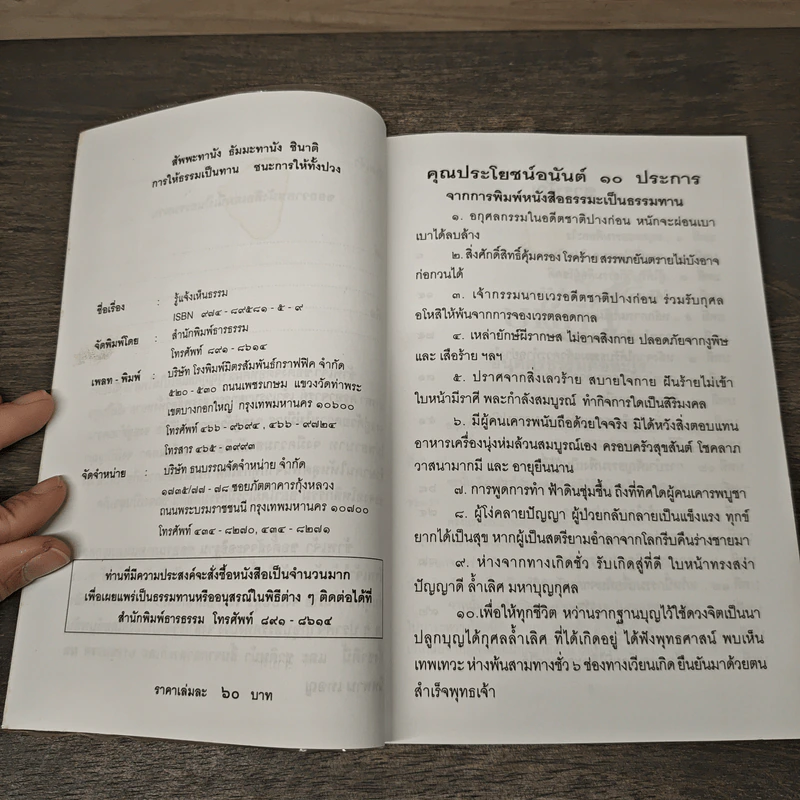 สัพพะทานัง ธัมมะทานัง ชินาติ
การให้ธรรมเป็นทาน ชนะการให้ทั้งปวง
ชื่อเรื่อง : รู้แจ้งเห็นธรรม
ISBN ๙๗๔ - ๘๙๕๘๑ - ๕ - ๙
จัดพิมพ์โดย : สำนักพิมพ์ธารธรรม
โทรศัพท์ ๘๙๑ - ๘๖๑๔
เพลท - พิมพ์ : บริษัท โรงพิมพ์มิตรสัมพันธ์กราฟฟิค จำกัด
๕๒๐ - ๕๓๐ ถนนเพชรเกษม แขวงวัดท่าพระ
เขตบางกอกใหญ่ กรุงเทพมหานคร ๑๐๖๐๐
โทรศัพท์ ๔๖๖ - ๙๖๙๔ , ๔๖๖ - ๙๗๒๔
โทรสาร ๔๖๕ - ๓๙๙๓
จัดจำหน่าย : บริษัท ธนบรรณจัดจำหน่าย จำกัด
๑๗๓๕/๗๗ - ๗๘ ซอยภัตตาคารกุ้งหลวง
ถนนพระบรมราชชนนี กรุงเทพมหานคร ๑๐๗๐๐
โทรศัพท์ ๔๓๔ - ๘๒๗๐, ๔๓๔ - ๘๒๗๑
ท่านที่มีความประสงค์จะสั่งซื้อหนังสือเป็นจำนวนมาก
เพื่อเผยแพร่เป็นธรรมทานหรืออนุสรณ์ในพิธีต่าง ๆ ติดต่อได้ที่
สำนักพิมพ์ธารธรรม โทรศัพท์ ๘๙๑ - ๘๖๑๔
ราคาเล่มละ ๖๐ บาท
คุณประโยชน์อนันต์ ๑๐ ประการ
จากการพิมพ์หนังสือธรรมะเป็นธรรมทาน
๑. อกุศลกรรมในอดีตชาติปางก่อน หนักจะผ่อนเบา
เบาได้ลบล้าง
๒. สิ่งศักดิ์สิทธิ์คุ้มครอง โรคร้าย สรรพภยันตรายไม่บังอาจ
ก่อกวนได้
๓. เจ้ากรรมนายเวรอดีตชาติปางก่อน ร่วมรับกุศล
อโหสิให้พ้นจากการจองเวรตลอดกาล
๔. เหล่ายักษ์ผีรากษส ไม่อาจสิงกาย ปลอดภัยจากงูพิษ
และ เสือร้าย ฯลฯ
๕. ปราศจากสิ่งเลวร้าย สบายใจกาย ฝันร้ายไม่เข้า
ใบหน้ามีราศี พละกำลังสมบูรณ์ ทำกิจการใดเป็นสิริมงคล
๖. มีผู้คนเคารพนับถือด้วยใจจริง มิได้หวังสิ่งตอบแทน
อาหารเครื่องนุ่งห่มล้วนสมบูรณ์เอง ครอบครัวสุขสันต์ โชคลาภ
วาสนามากมี และ อายุยืนนาน
๗. การพูดการทำ ฟ้าดินชุ่มชื้น ถึงที่ทิศใดผู้คนเคารพบูชา
๘. ผู้โง่คลายปัญญา ผู้ป่วยกลับกลายเป็นแข็งแรง ทุกข์
ยากได้เป็นสุข หากผู้เป็นสตรียามอำลาจากโลกรีบคืนร่างชายมา
๙. ห่างจากทางเกิดชั่ว รับเกิดสู่ที่ดี ใบหน้าทรงสง่า
ปัญญาดี ล้ำเลิศ มหาบุญกุศล
๑๐.เพื่อให้ทุกชีวิต หว่านรากฐานบุญไว้ใช้ดวงจิตเป็นนา
ปลูกบุญได้กุศลล้ำเลิศ ที่ได้เกิดอยู่ ได้ฟังพุทธศาสน์ พบเห็น
เทพเทวะ ห่างพ้นสามทางชั่ว ๖ ช่องทางเวียนเกิด ยืนยันมาด้วยตน
สำเร็จพุทธเจ้า